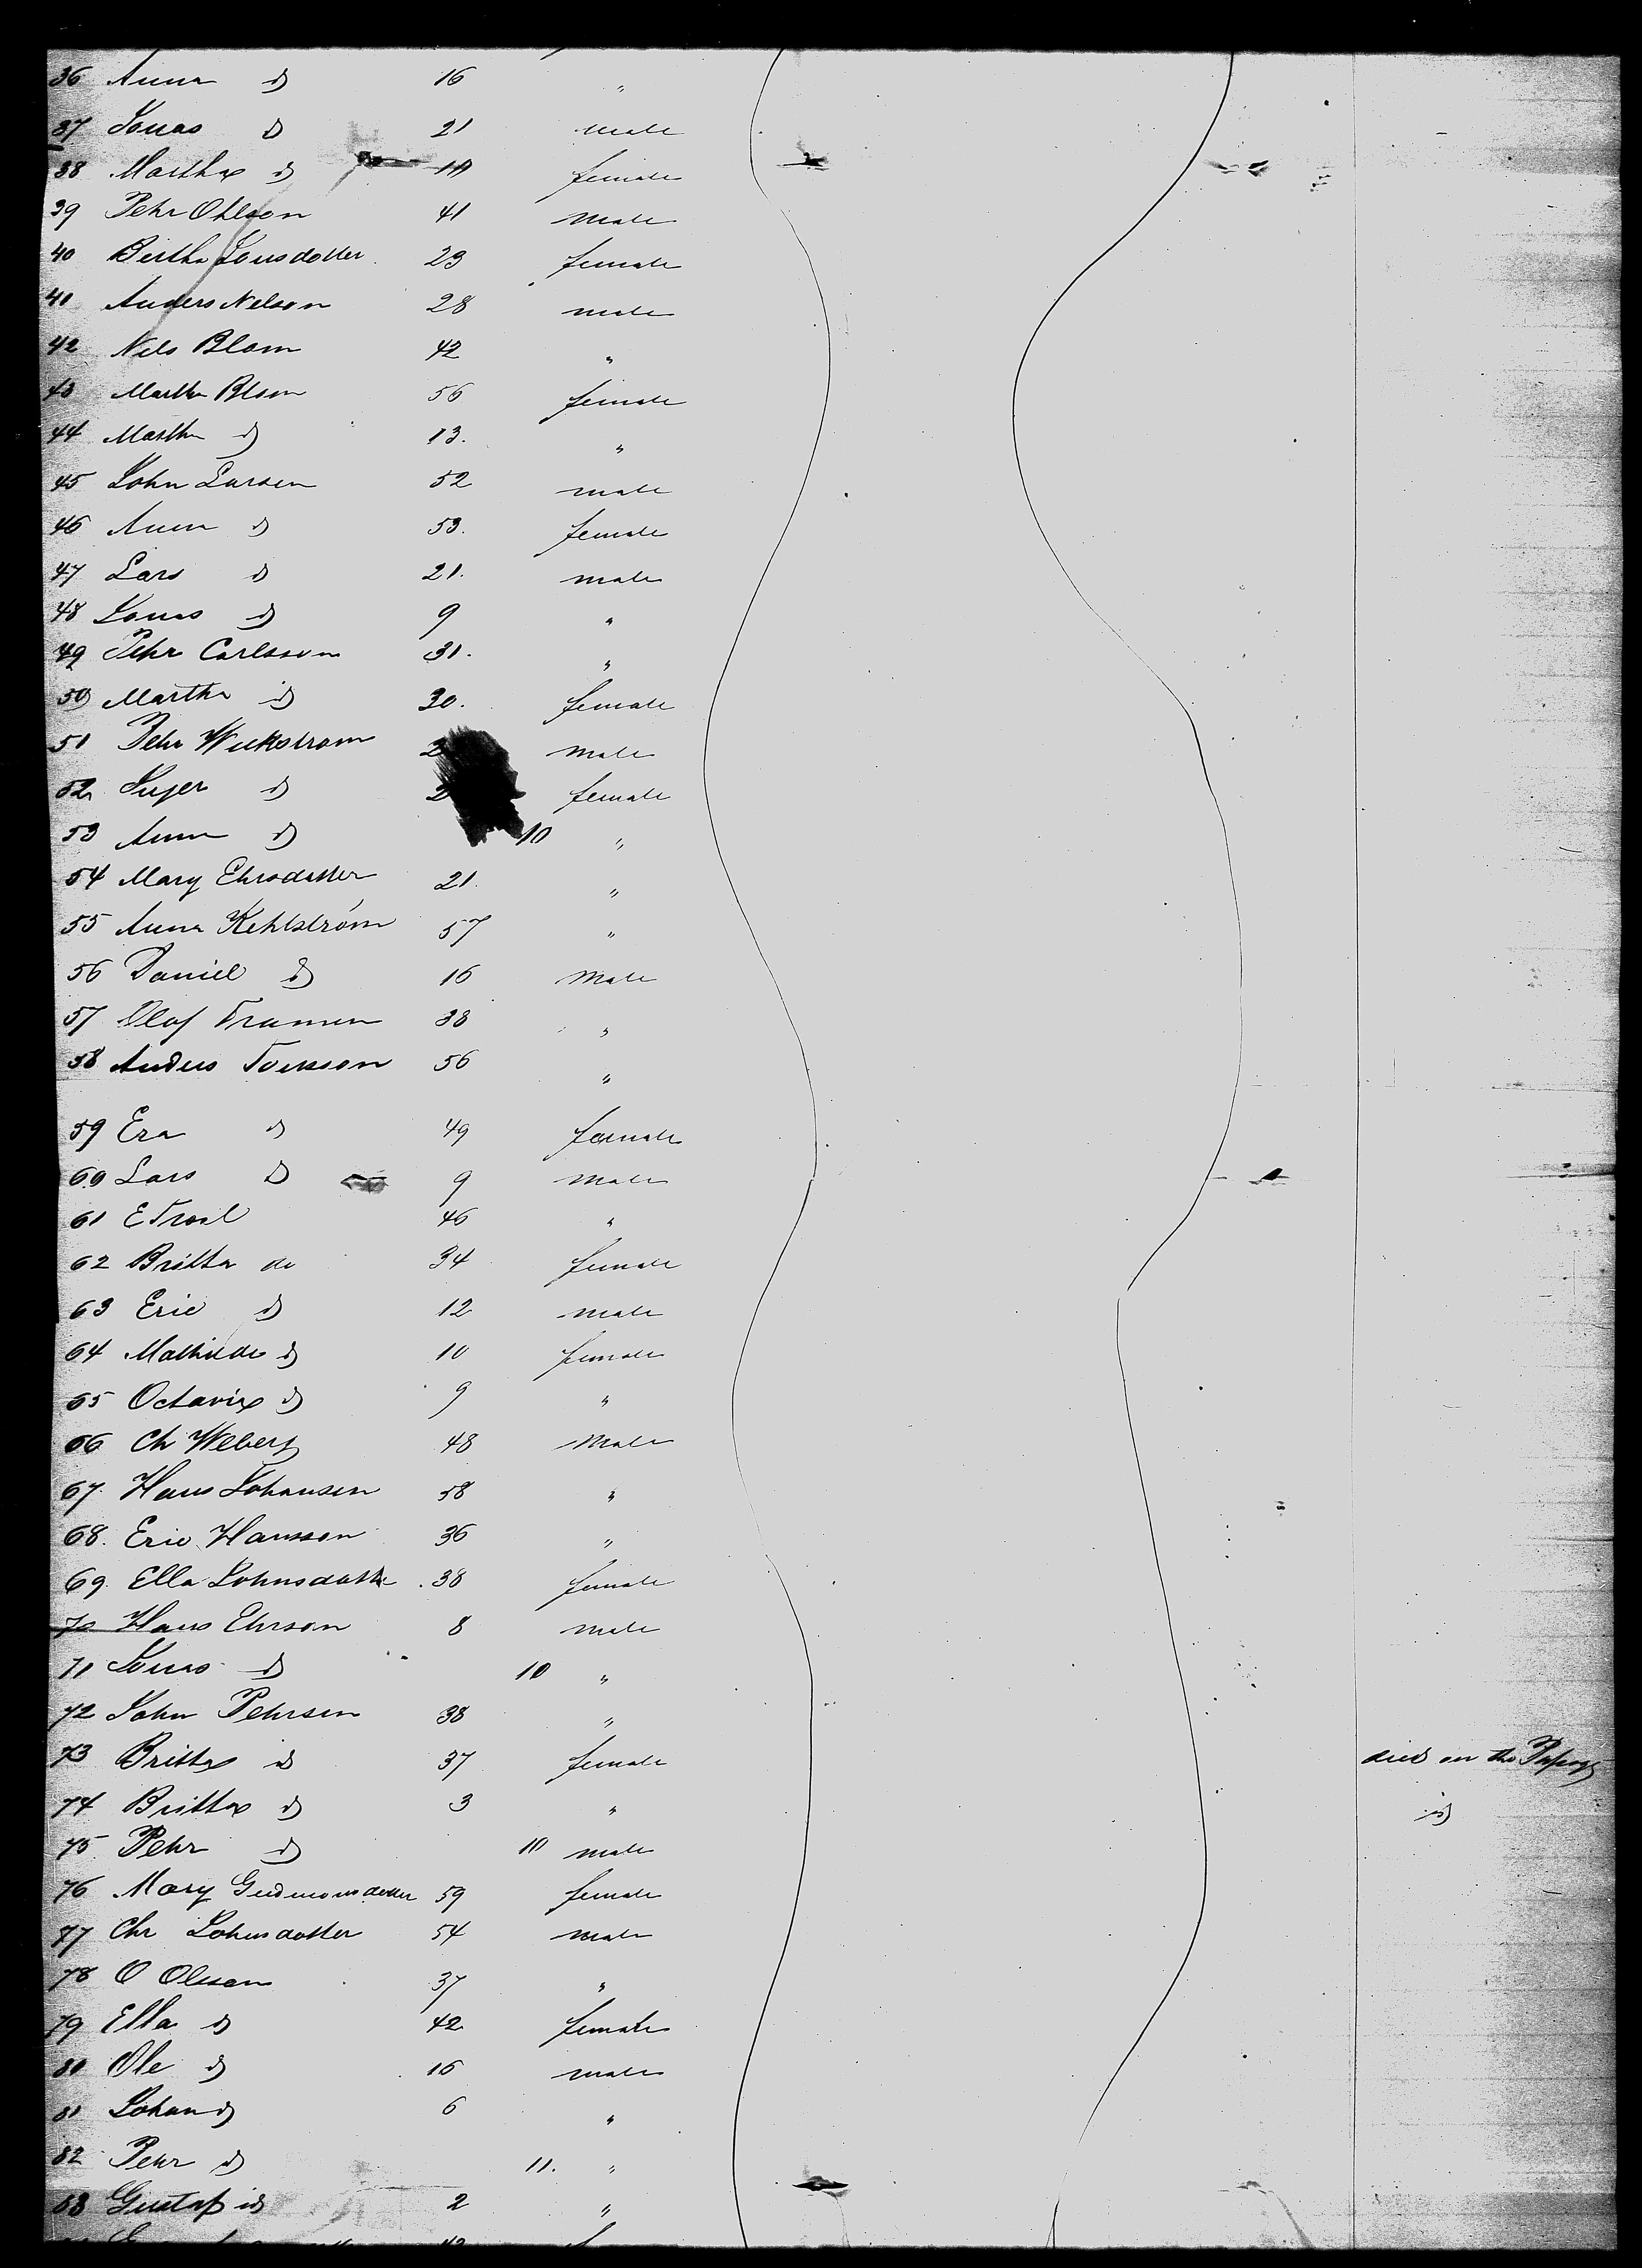 36 Anna id 16 "
37 Jonas id 21 male
38 Martha id female
39 Pehr Ohlson 41 male
40 Bertha Jonsdotter 23 female
41 Anders Nelson 28 male
42 Nils Blom 42 "
43 Martha Blom 56 female
44 Martha id 13. "
45 John Larsen 52 male
46 Anna id 53. female
47 Lars id 21. male
48 Jonas id 9 "
49 Pehr Carlsson 31. "
50 Martha id 30. female
51 Pehr Wickstrom male
52 id female
53 Anna id 10 "
54 Mary Ehrsdotter 21. "
55 Anna Kehlström 57 "
56 Daniel id 16 male
57 Olof 38 "
58 Anders 56 "
59 id 49 female
60 Lars id 9 male
61 E 46 "
62 Britta do 34 female
63 Eric id 12 male
64 Mathilde id 10 female
65 Octavia id 9 "
66 Ch Weberg 48 male
67. Hans Johansen 58 "
68. Eric Hansson 36 "
69. Ella Johnsdotter 38 female
70 Hans Ehrson 8 male
71 Jonas id 10 "
72 John Pehrsen 38 "
73 Britta id 37 female died on the
74 Britta id 3 " id
75 Pehr id 10 male
76 Mary 59 female
77 Chr Johnsdotter 54 male
78 O Olsson 37 "
79 Ella id 42 female
80 Ole id 16 male
81 Johan id 6 "
82 Pehr id 11. "
83 Gustaf id 2 "